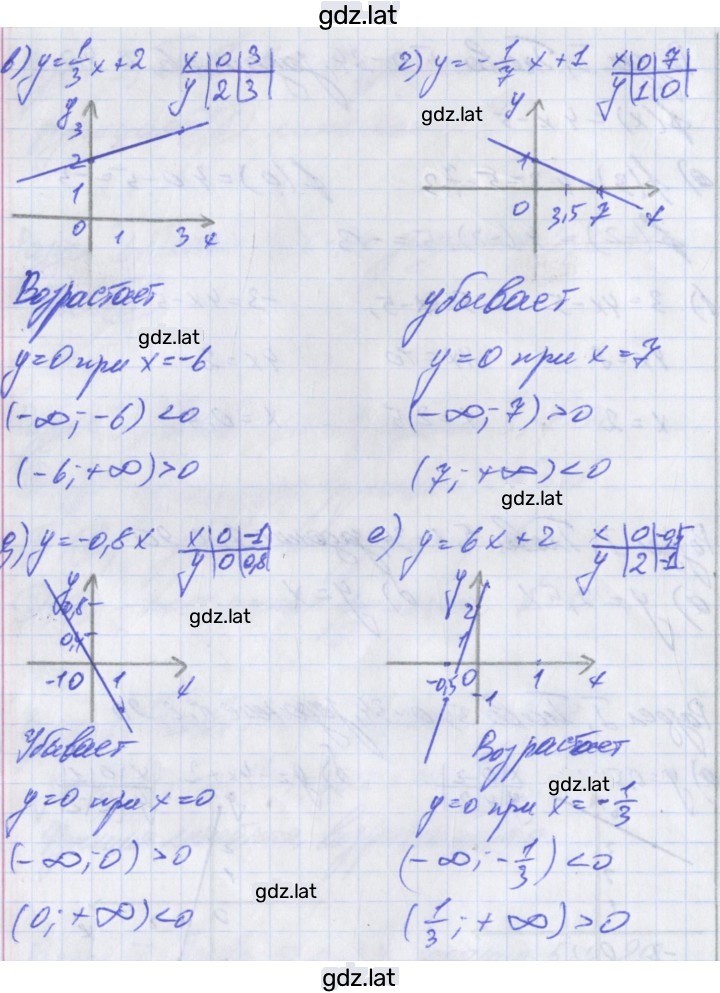 gdz.lat
в) y=1/3x+2 x|0|3
y|2|3
y
3
2
1
0 1 3 x
Возрастает
gdz.lat
y=0 при x=-6
(-∞;-6) <0
(-6;+∞)>0
г) y=-1/7x+1 x|0|7
y|1|0
gdz.lat
y
1
0 3,5 7 x
убывает
y=0 при x=7
(-∞;7)>0
(7;+∞)<0
gdz.lat
д) y=-0,8x x|0|-1
y|0|0,8
y
0,8
0,4
-1 0 1 x
gdz.lat
Убывает
y=0 при x=0
(-∞;0)>0
(0;+∞)<0
gdz.lat
е) y=6x+2 x|0|-0,5
y|2|-1
y
2
1
-0,5 0 1 x
-1
Возрастает
gdz.lat
y=0 при x=-1/3
(-∞;-1/3)<0
(1/3;+∞)>0
gdz.lat